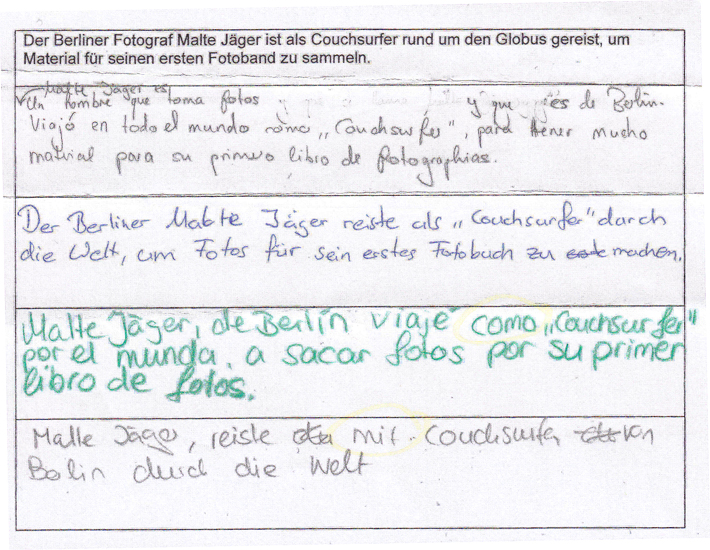 Der Berliner Fotograf Malte Jäger ist als Couchsurfer rund um den Globus gereist, um
Material für seinen ersten Fotoband zu sammeln.
Malte Jäger es
Un hombre que toma fotos y que es de Berlin.
Viajó en todo el mundo como „Couchsurfer", para tener mucho
material para su primero libro de fotographias.
Der Berliner Malte Jäger reiste als „Couchsurfer" durch
die Welt, um Fotos für sein erstes Fotobuch zu machen.
Malte Jäger, de Berlín viajé como „Couchsurfer"
por el munda, a sacar fotos por su primer
libro de fotos.
Malle Jäger, reiste mit Couchsurfer von
Berlin durch die Welt